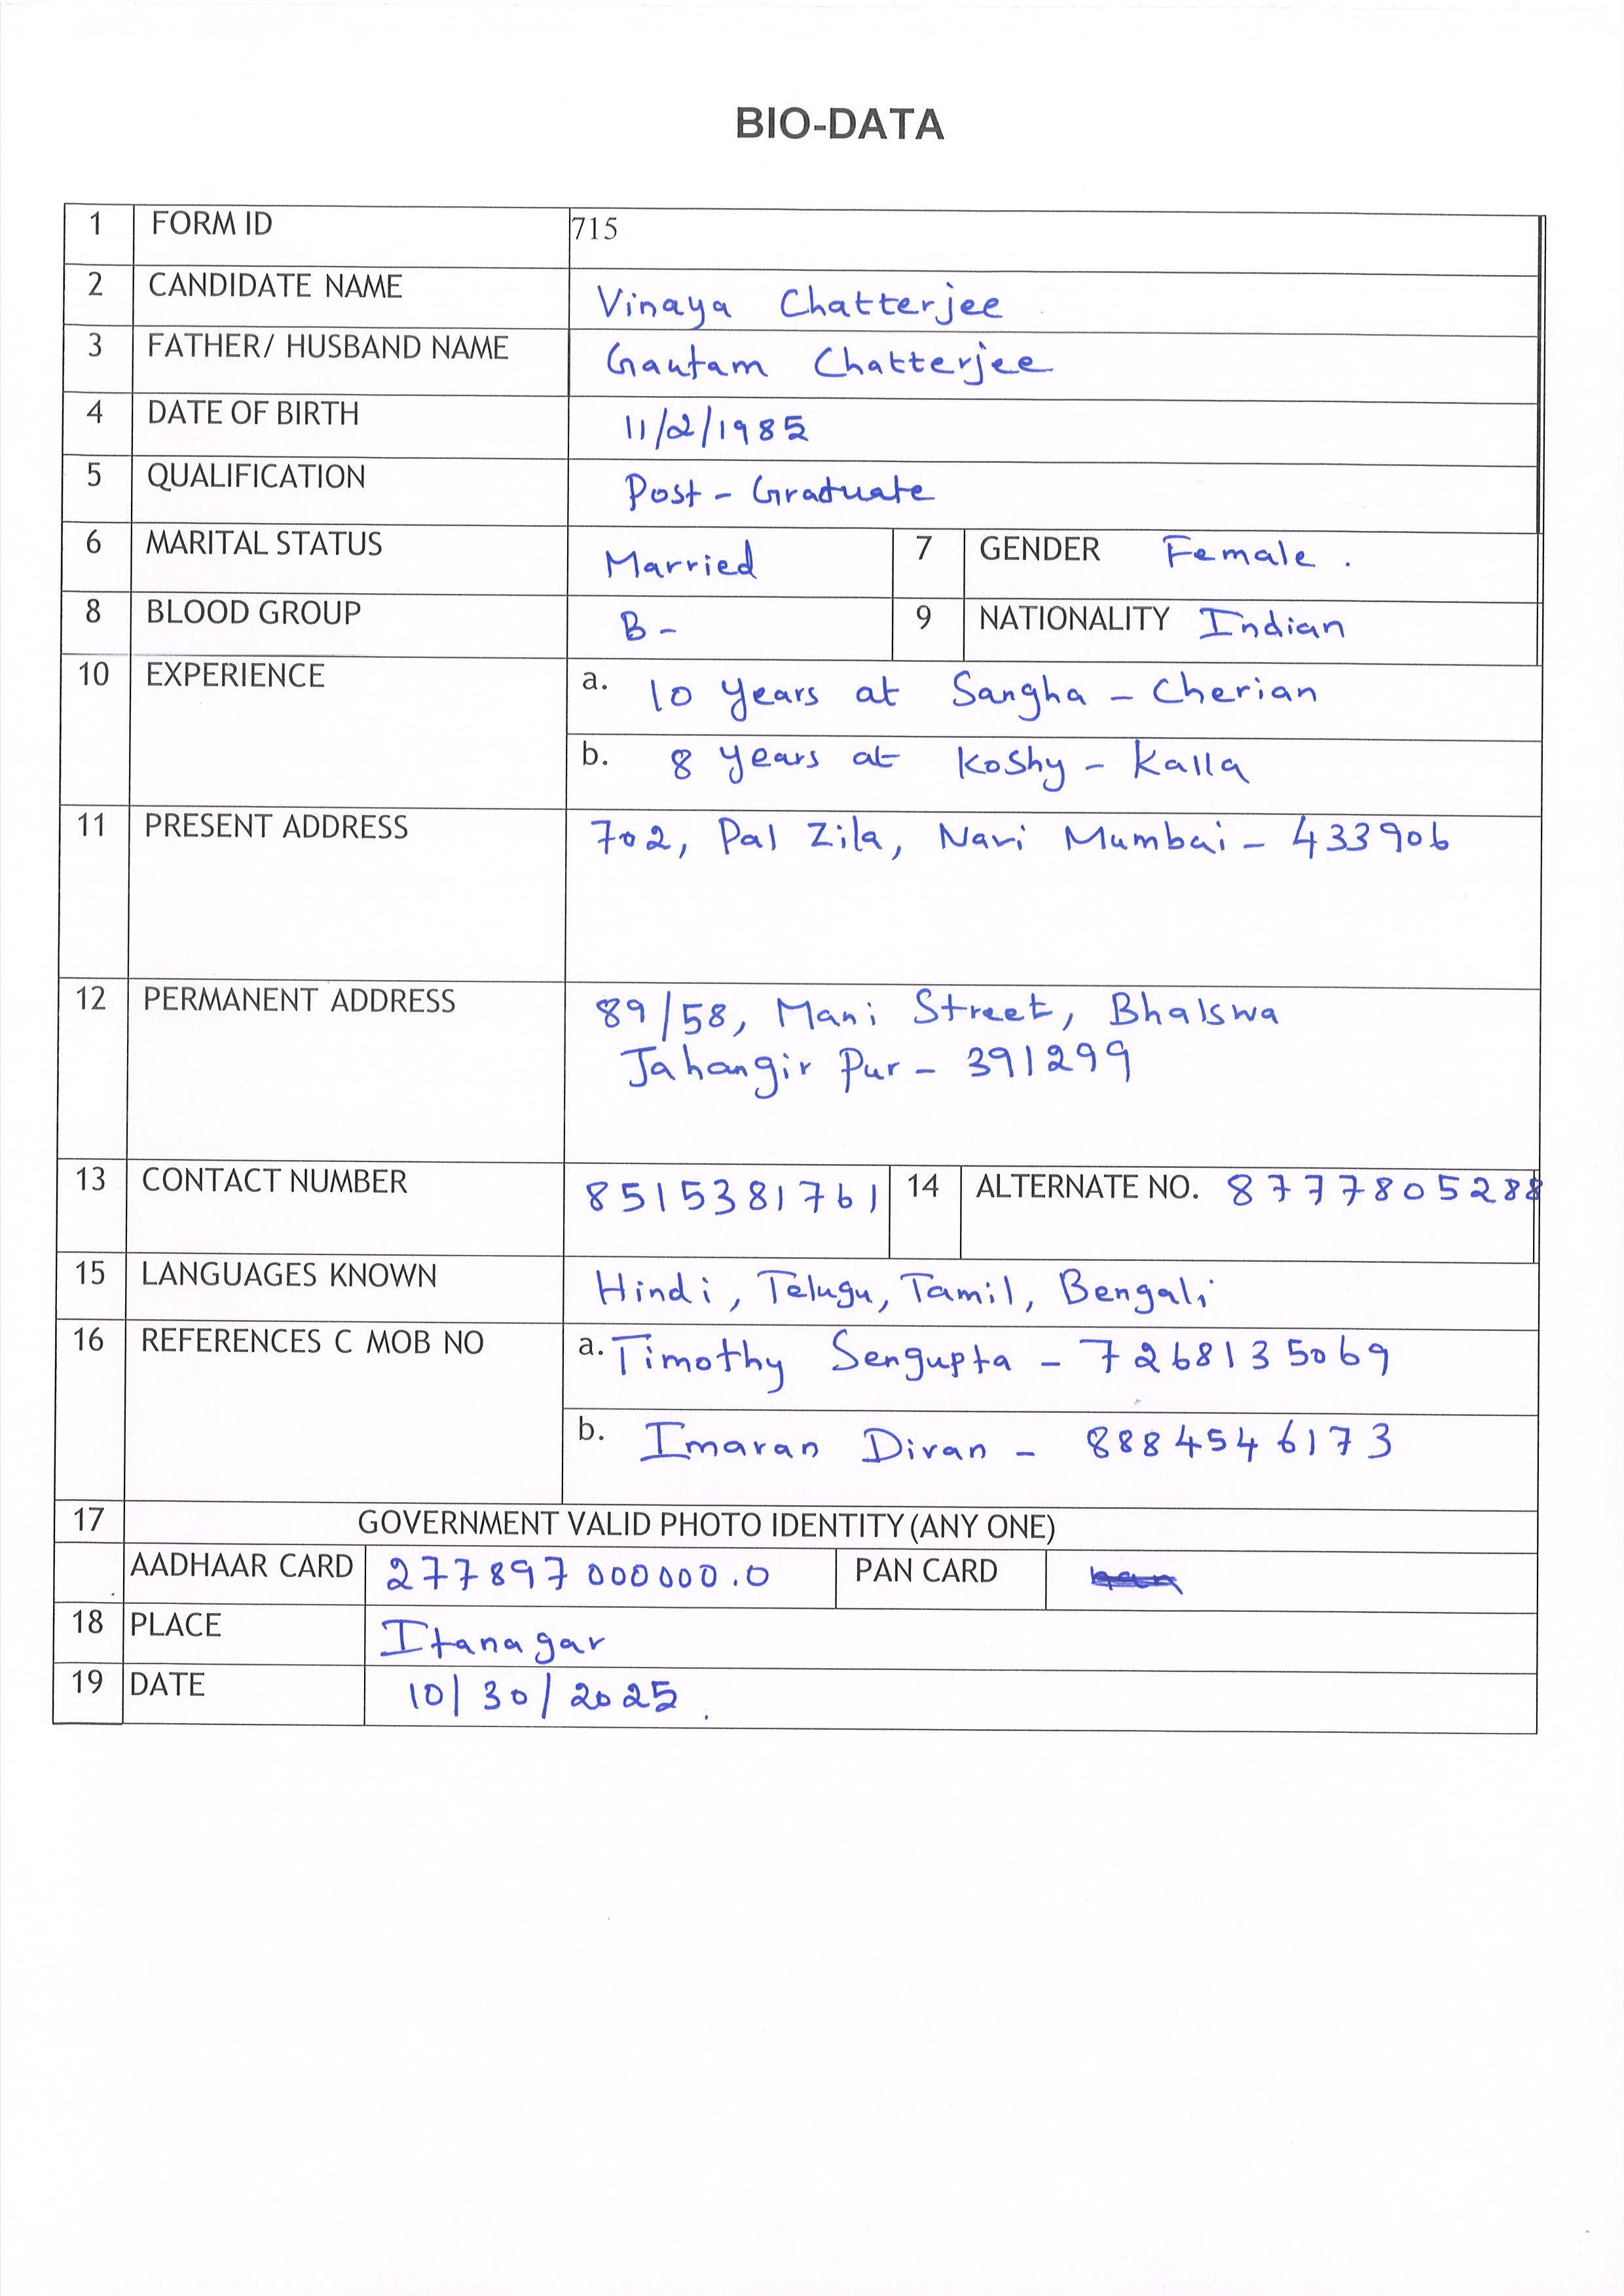 BIO-DATA
1 FORM ID 715
2 CANDIDATE NAME Vinaya Chatterjee
3 FATHER/ HUSBAND NAME Gautam Chatterjee
4 DATE OF BIRTH 11/2/1985
5 QUALIFICATION Post - Graduate
6 MARITAL STATUS Married 7 GENDER Female .
8 BLOOD GROUP B - 9 NATIONALITY Indian
10 EXPERIENCE a. 10 years at Sangha - Cherian
b. 8 years at Koshy - Kalla
11 PRESENT ADDRESS 702, Pal Zila, Navi Mumbai - 433906
12 PERMANENT ADDRESS 89/58, Mani Street, Bhalswa
Jahangir Pur - 391299
13 CONTACT NUMBER 8515381761 14 ALTERNATE NO. 8777805288
15 LANGUAGES KNOWN Hindi, Telugu, Tamil, Bengali
16 REFERENCES C MOB NO a. Timothy Sengupta - 7268135069
b. Imaran Divan - 8884546173
17 GOVERNMENT VALID PHOTO IDENTITY (ANY ONE)
AADHAAR CARD 277897000000.0 PAN CARD
18 PLACE Itanagar
19 DATE 10/30/2025.